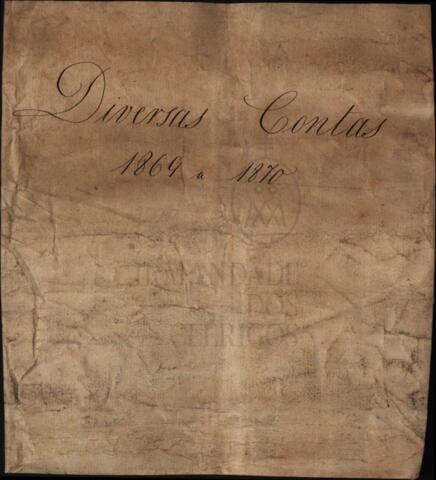 Diversas Contas
1869 a 1870
IRMANDADE
DOS
CLERIGOS